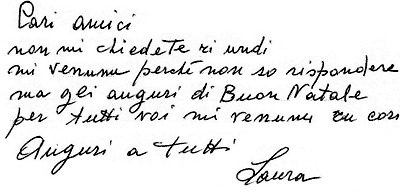 Cari amici
non mi chiedete ri undi
mi venunu perché non so rispondere
ma gli auguri di Buon Natale
per tutti voi mi venunu cu cori
Auguri a tutti
Laura